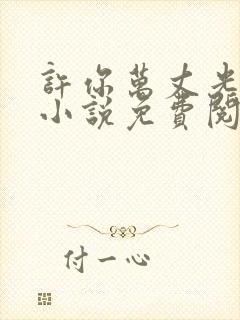 許你萬丈光
小說免費閱
付一心